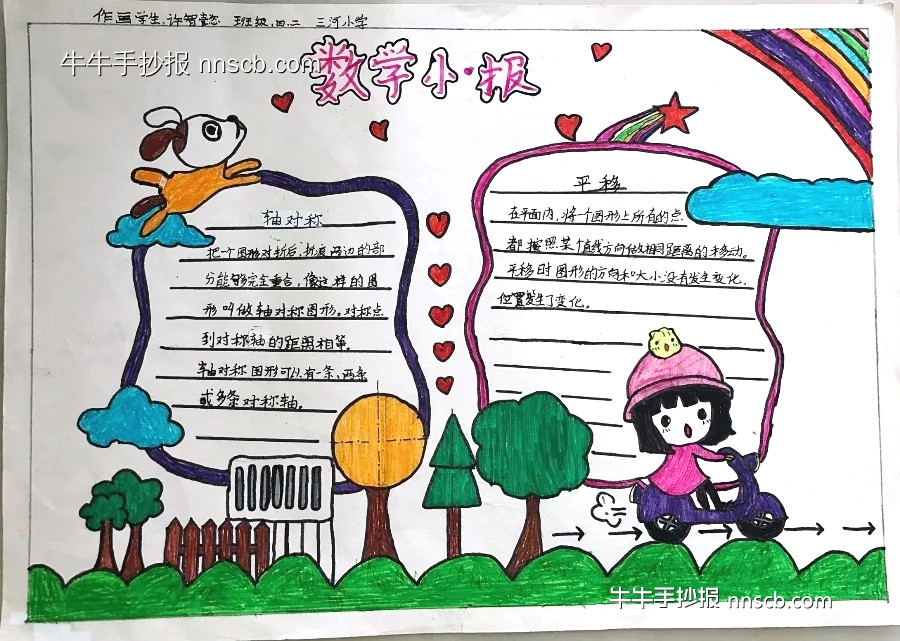 作画学生:许智壹 班级:四.二 三河小学
牛牛手抄报 nnscb.com
数学小报
轴对称
把一个图形对折后,折痕两边的部
分能够完全重合,像这样的图
形叫做轴对称图形。对称点
到对称轴的距离相等。
轴对称图形可以有一条、两条
或多条对称轴。
平移
在平面内,将个图形上所有的点
都按照某个直线方向做相同距离的移动。
平移时图形的方向和大小没有发生变化,
位置发生了变化。
牛牛手抄报 nnscb.com